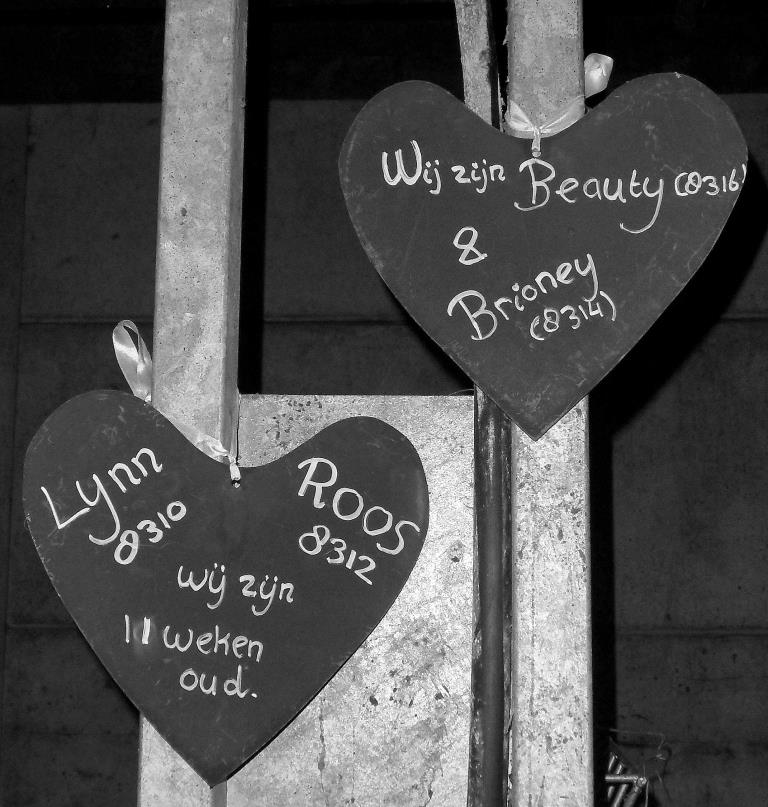 Wij zijn Beauty (8316)
&
Brioney
(8314)
Lynn
8310
ROOS
8312
wij zijn
11 weken
oud.